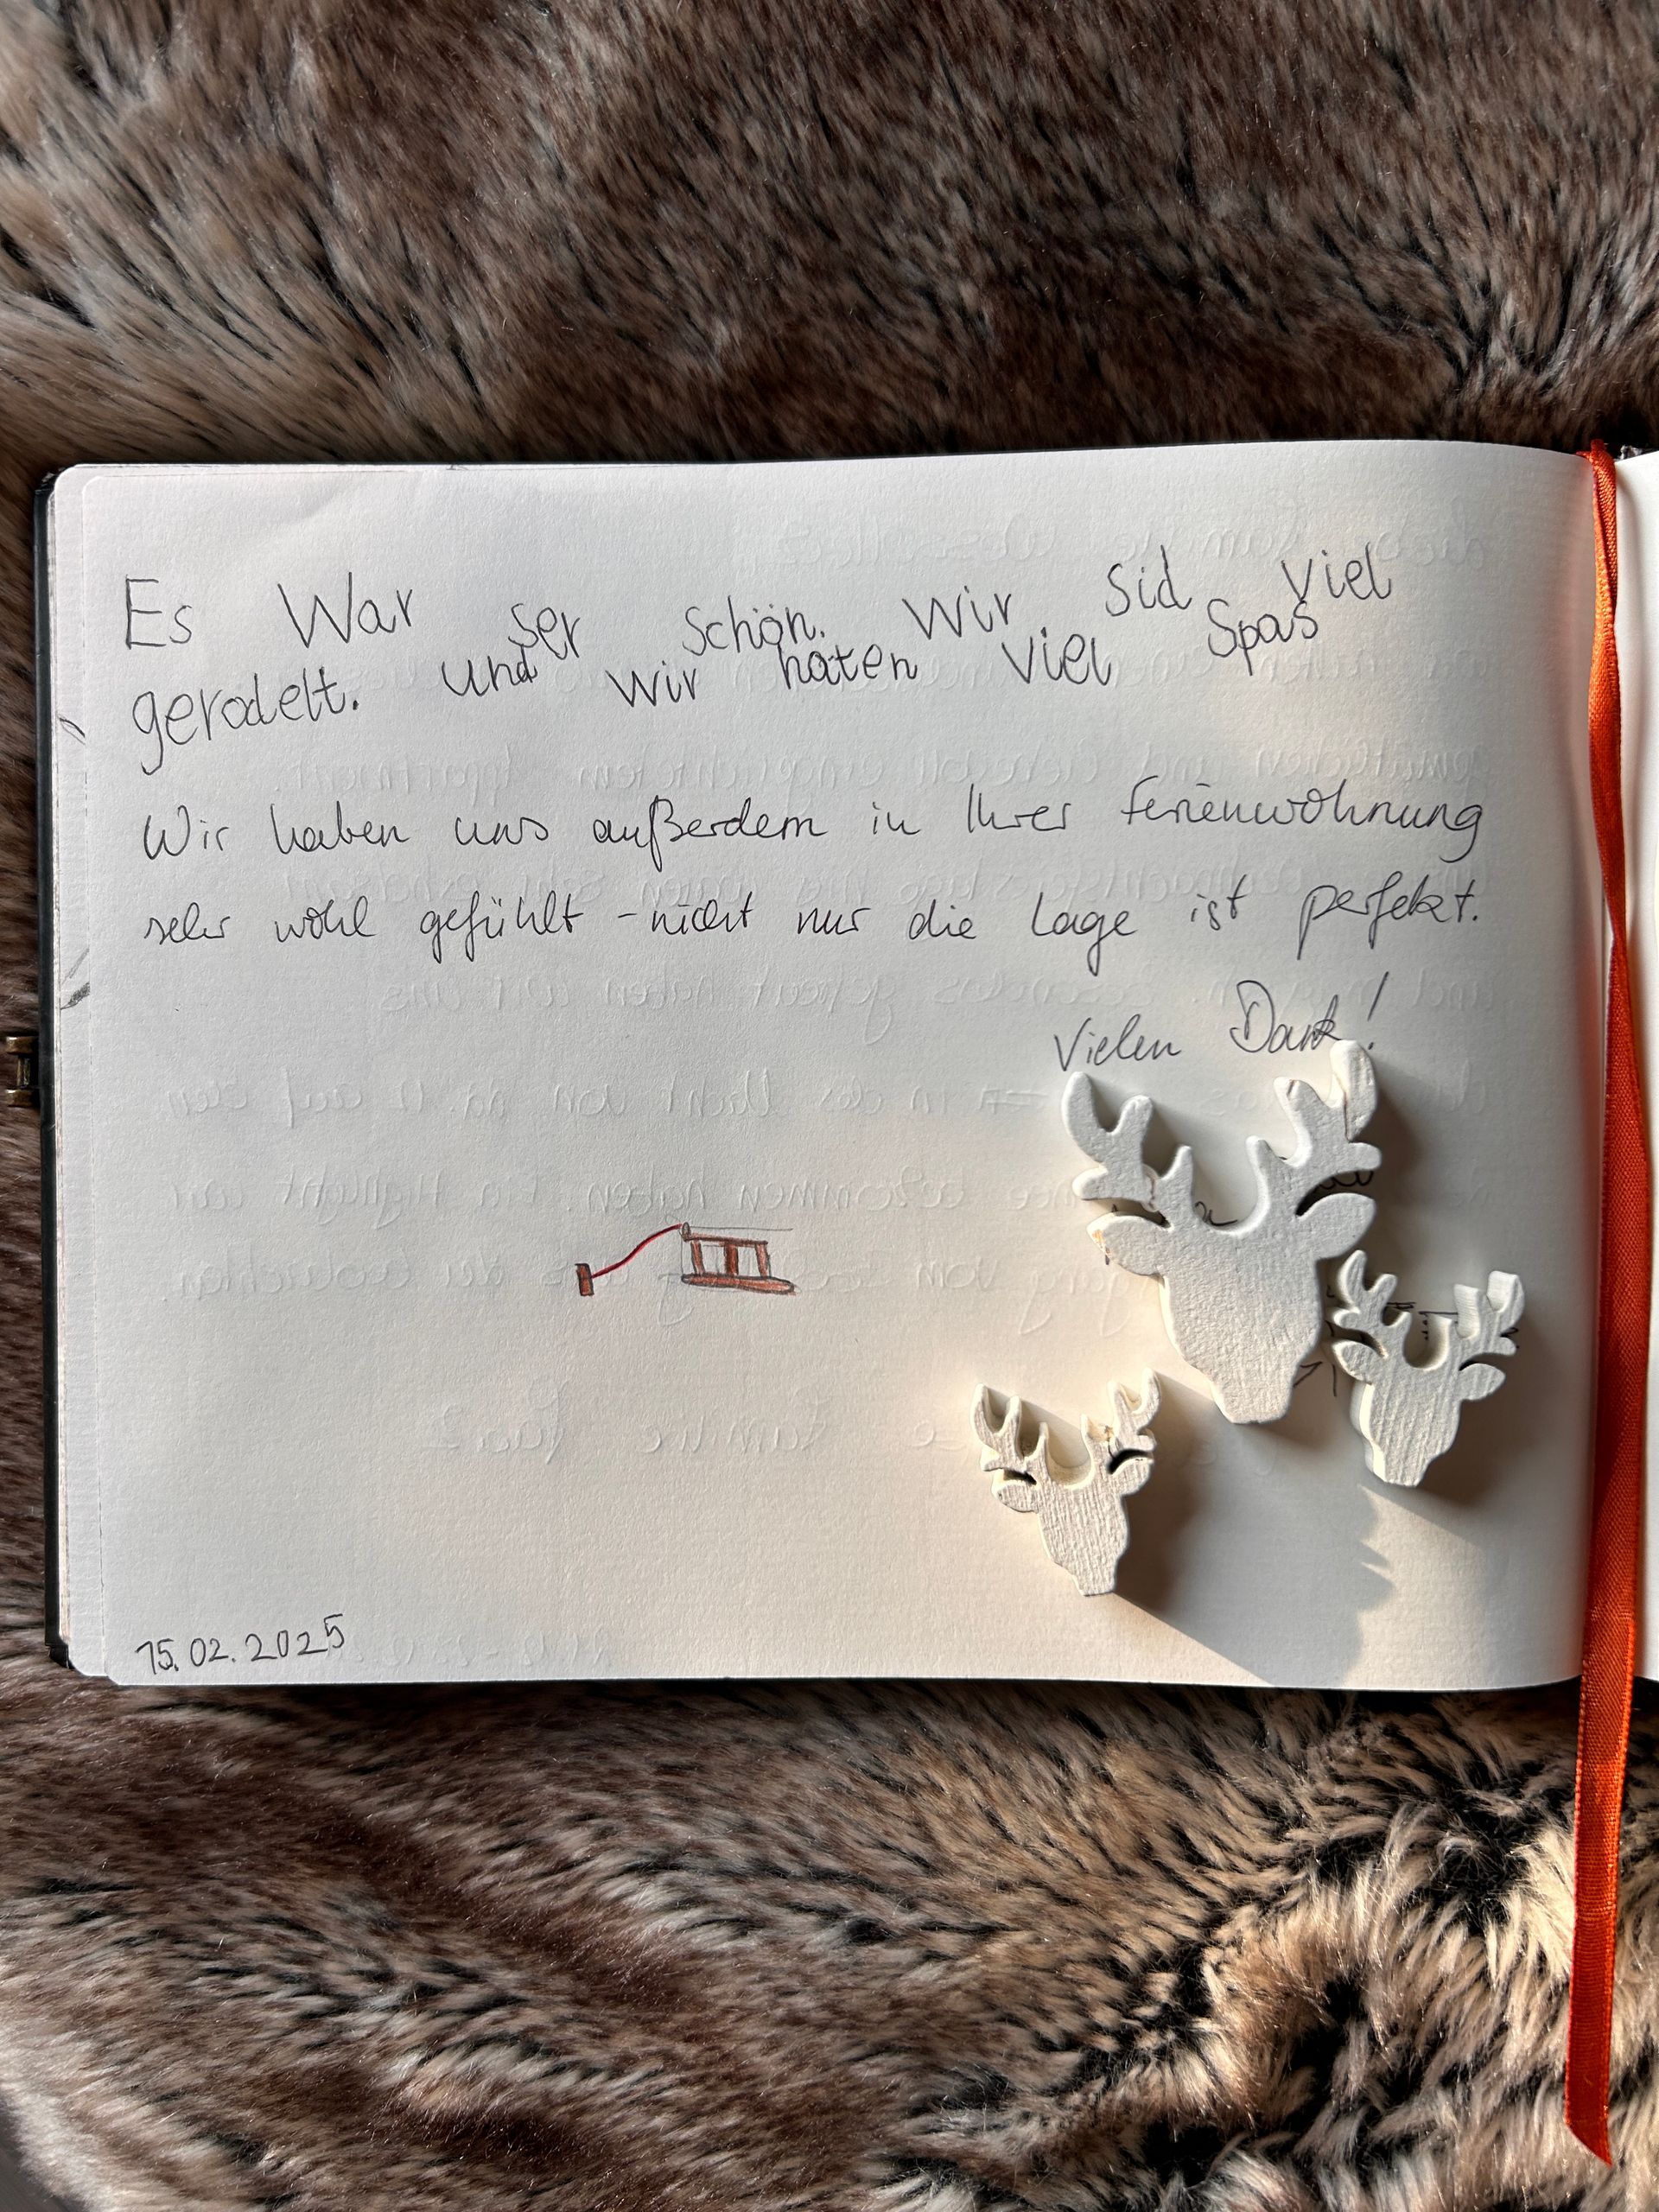 Es War ser schön. Wir sid viel
gerodelt. und wir haten viel Spas
Wir haben uns außerdem in Ihrer Ferienwohnung
sehr wohl gefühlt - nicht nur die Lage ist perfekt.
Vielen Dank!
15.02.2025